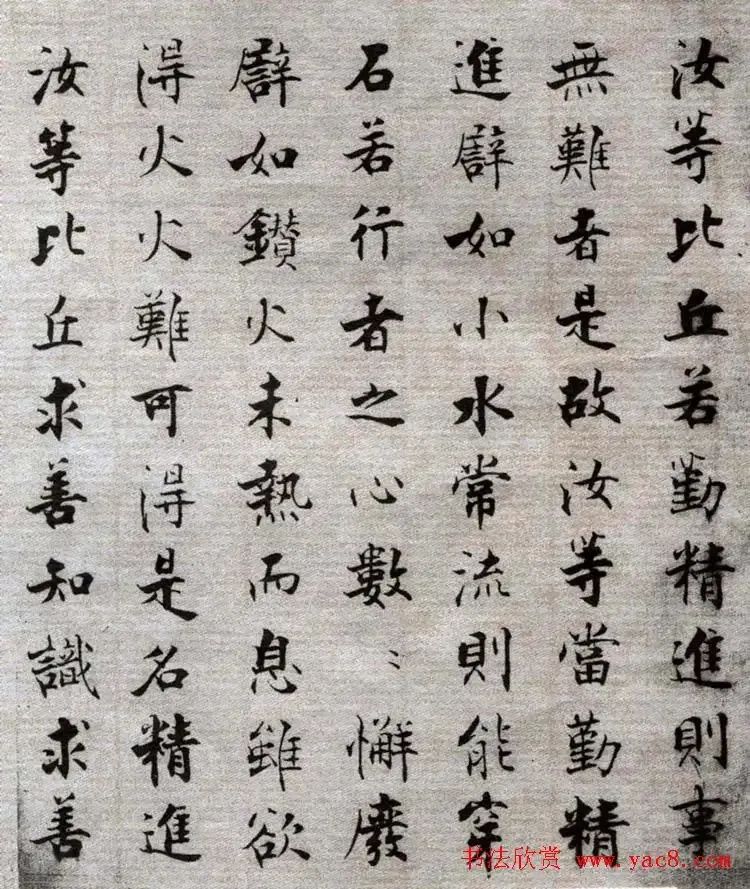 汝等比丘若勤精進則事
無難者是故汝等當勤精
進譬如小水常流則能穿
石若行者之心數〻懈廢
譬如鑽火未熱而息雖欲
得火火難可得是名精進
汝等比丘求善知識求善
书法欣赏 www.yac8.com